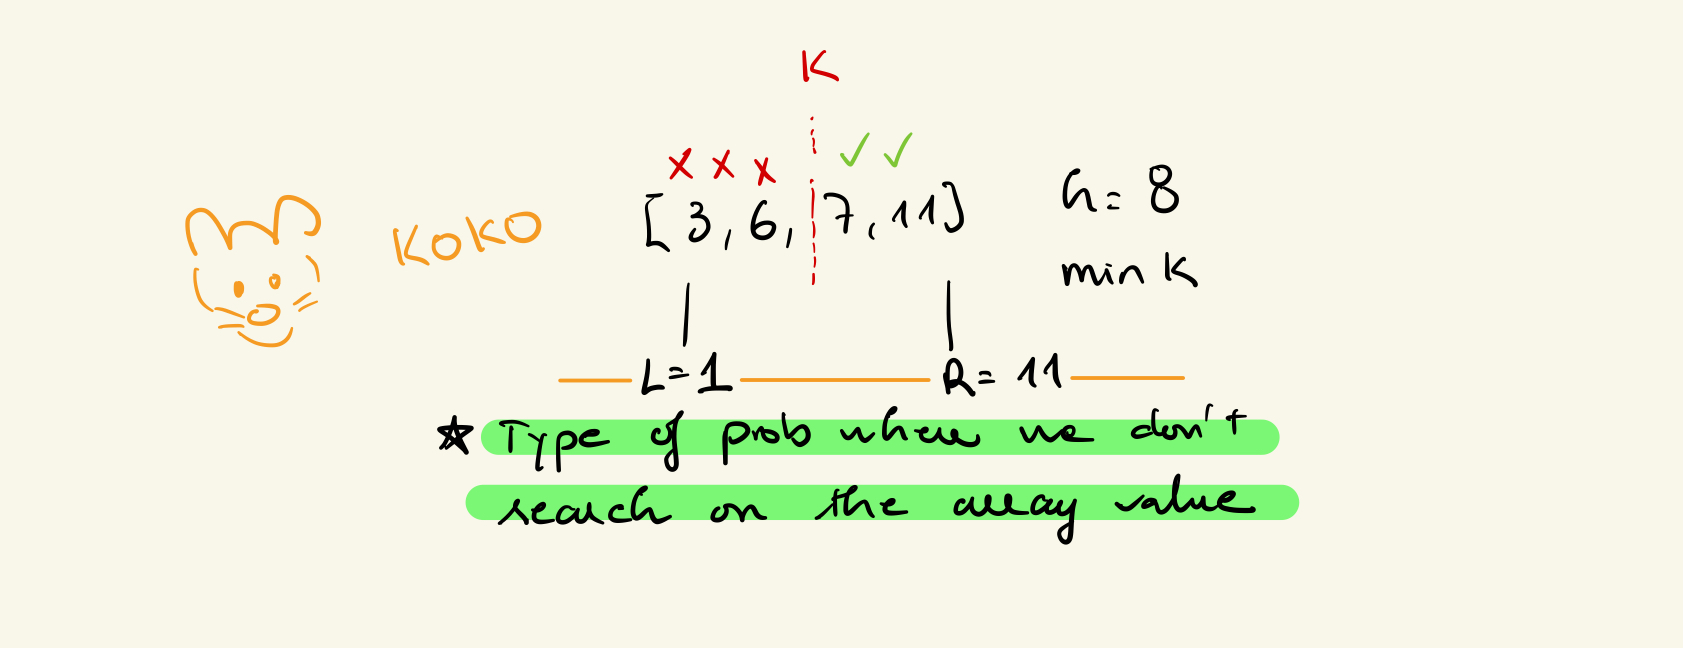 K
[3, 6, 7, 11]
h = 8
KOKO
min K
L=1
R= 11
Type of prob where we don't
search on the array value